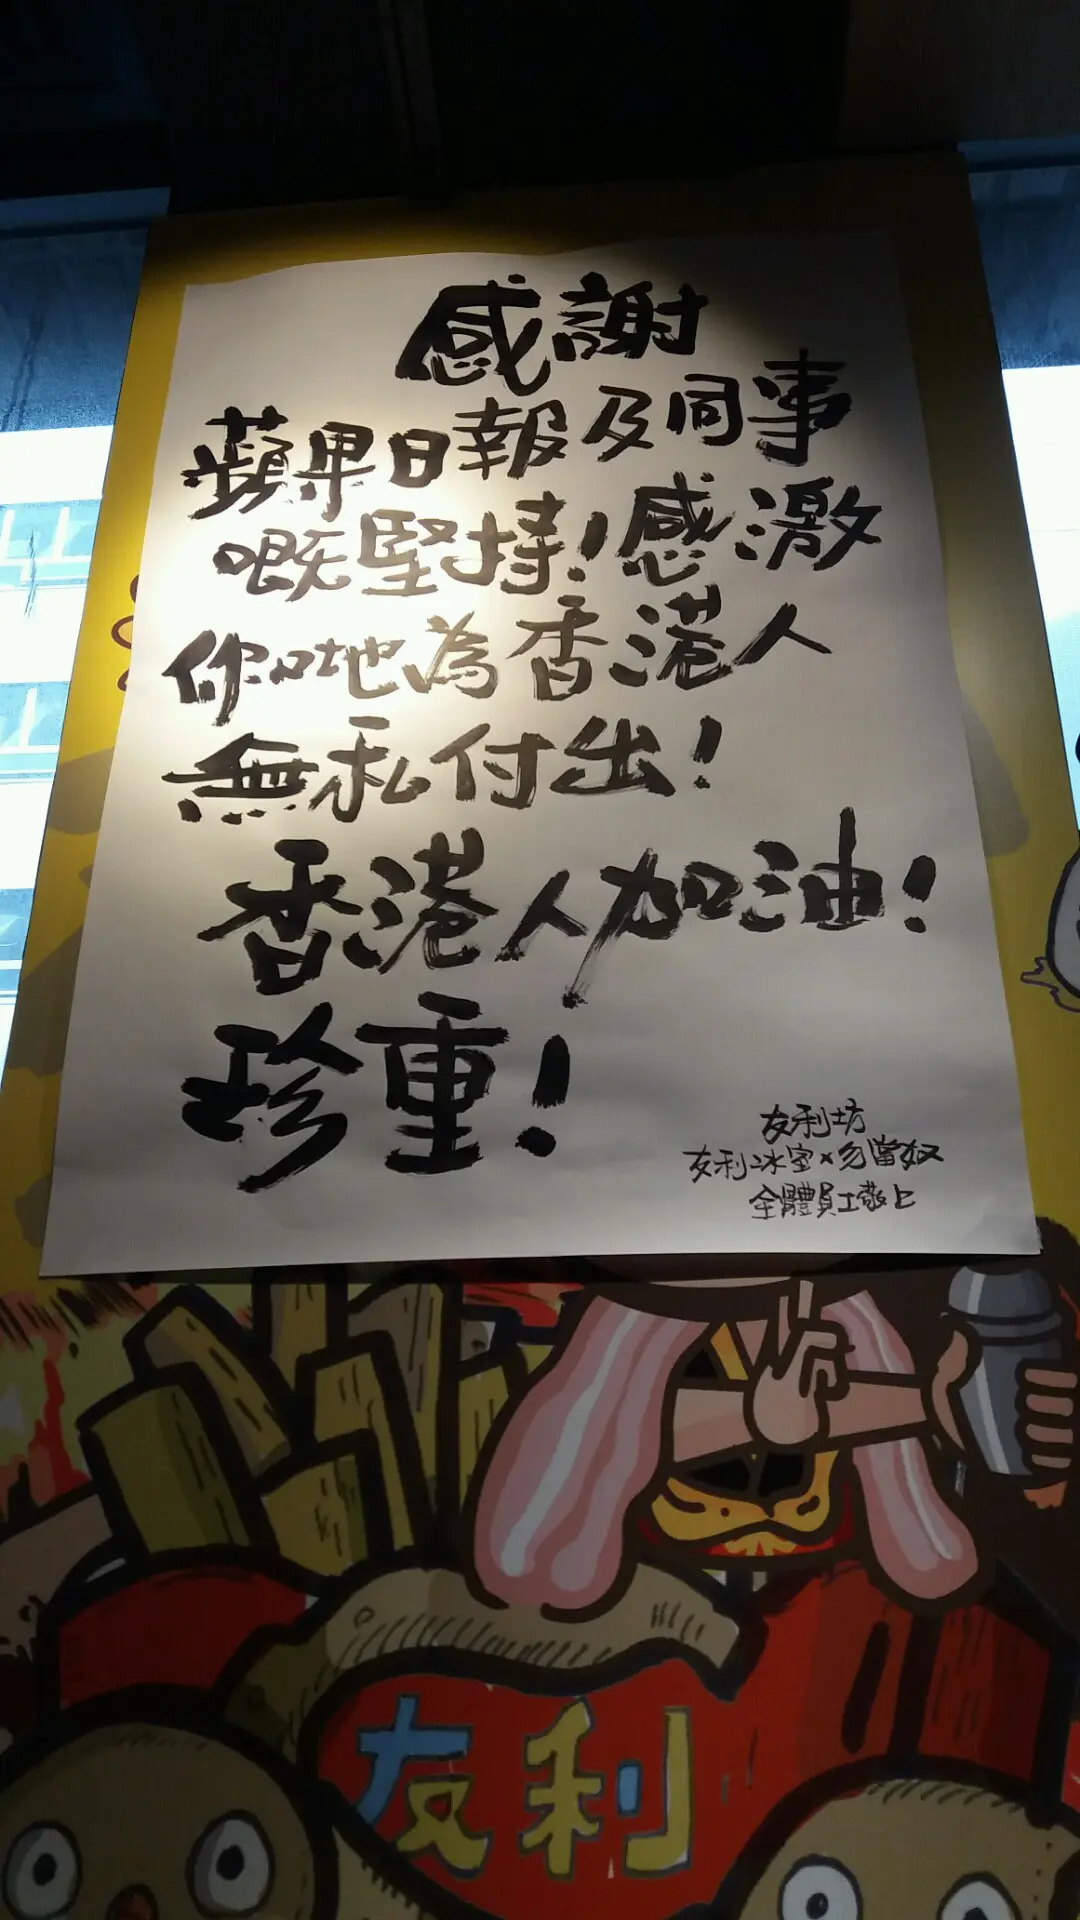 感謝
蘋果日報及同事
嘅堅持！感激
你哋為香港人
無私付出！
香港人加油！
珍重！
友利坊
友利冰室×勿當奴
全體員工敬上
友利